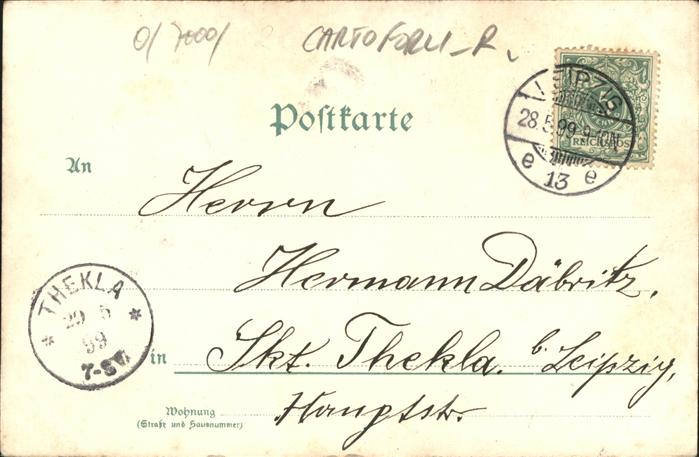 0/7000/ CARTOFORLI_R
Postkarte
LEIPZIG
28.5.99.9-10N
e 13 e
REICHSPOST
An
Herrn
Hermann Däbritz,
THEKLA
29 5
99
in Skt. Thekla. b. Leipzig,
Hauptstr.
Wohnung
(Straße und Hausnummer)